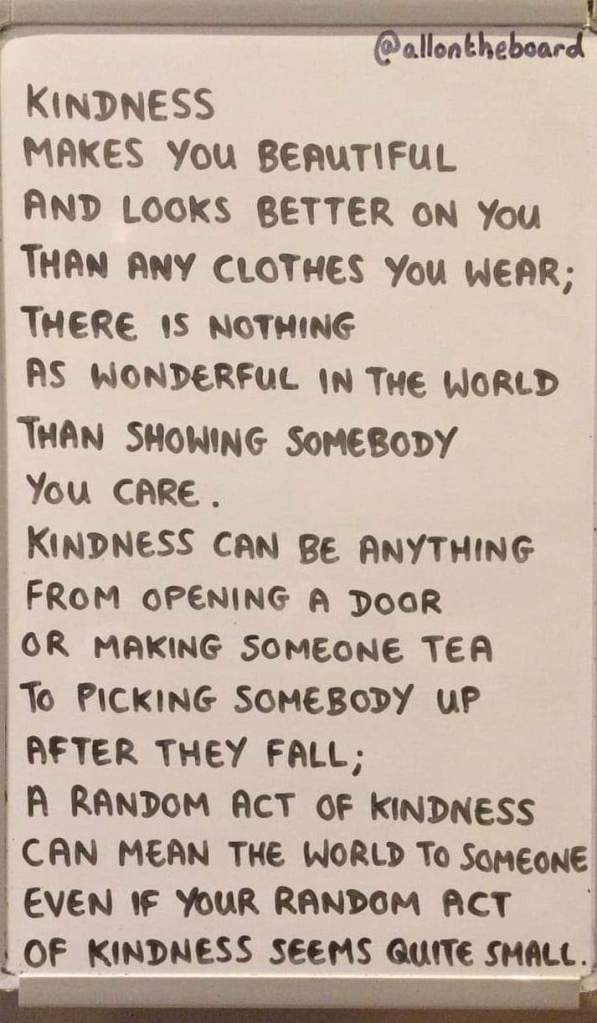 @allontheboard
KINDNESS
MAKES YOU BEAUTIFUL
AND LOOKS BETTER ON YOU
THAN ANY CLOTHES YOU WEAR;
THERE IS NOTHING
AS WONDERFUL IN THE WORLD
THAN SHOWING SOMEBODY
YOU CARE.
KINDNESS CAN BE ANYTHING
FROM OPENING A DOOR
OR MAKING SOMEONE TEA
TO PICKING SOMEBODY UP
AFTER THEY FALL;
A RANDOM ACT OF KINDNESS
CAN MEAN THE WORLD TO SOMEONE
EVEN IF YOUR RANDOM ACT
OF KINDNESS SEEMS QUITE SMALL.